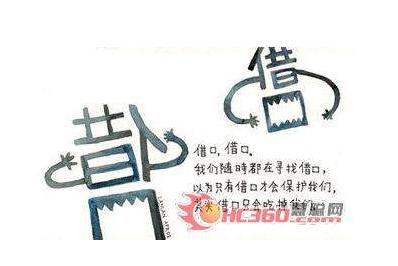 借口
借口
借口,借口。
我们随時都在寻找借口,
以为只有借口才会保护我们,
其实借口只会吃掉我们。
HC360.com 慧聪网